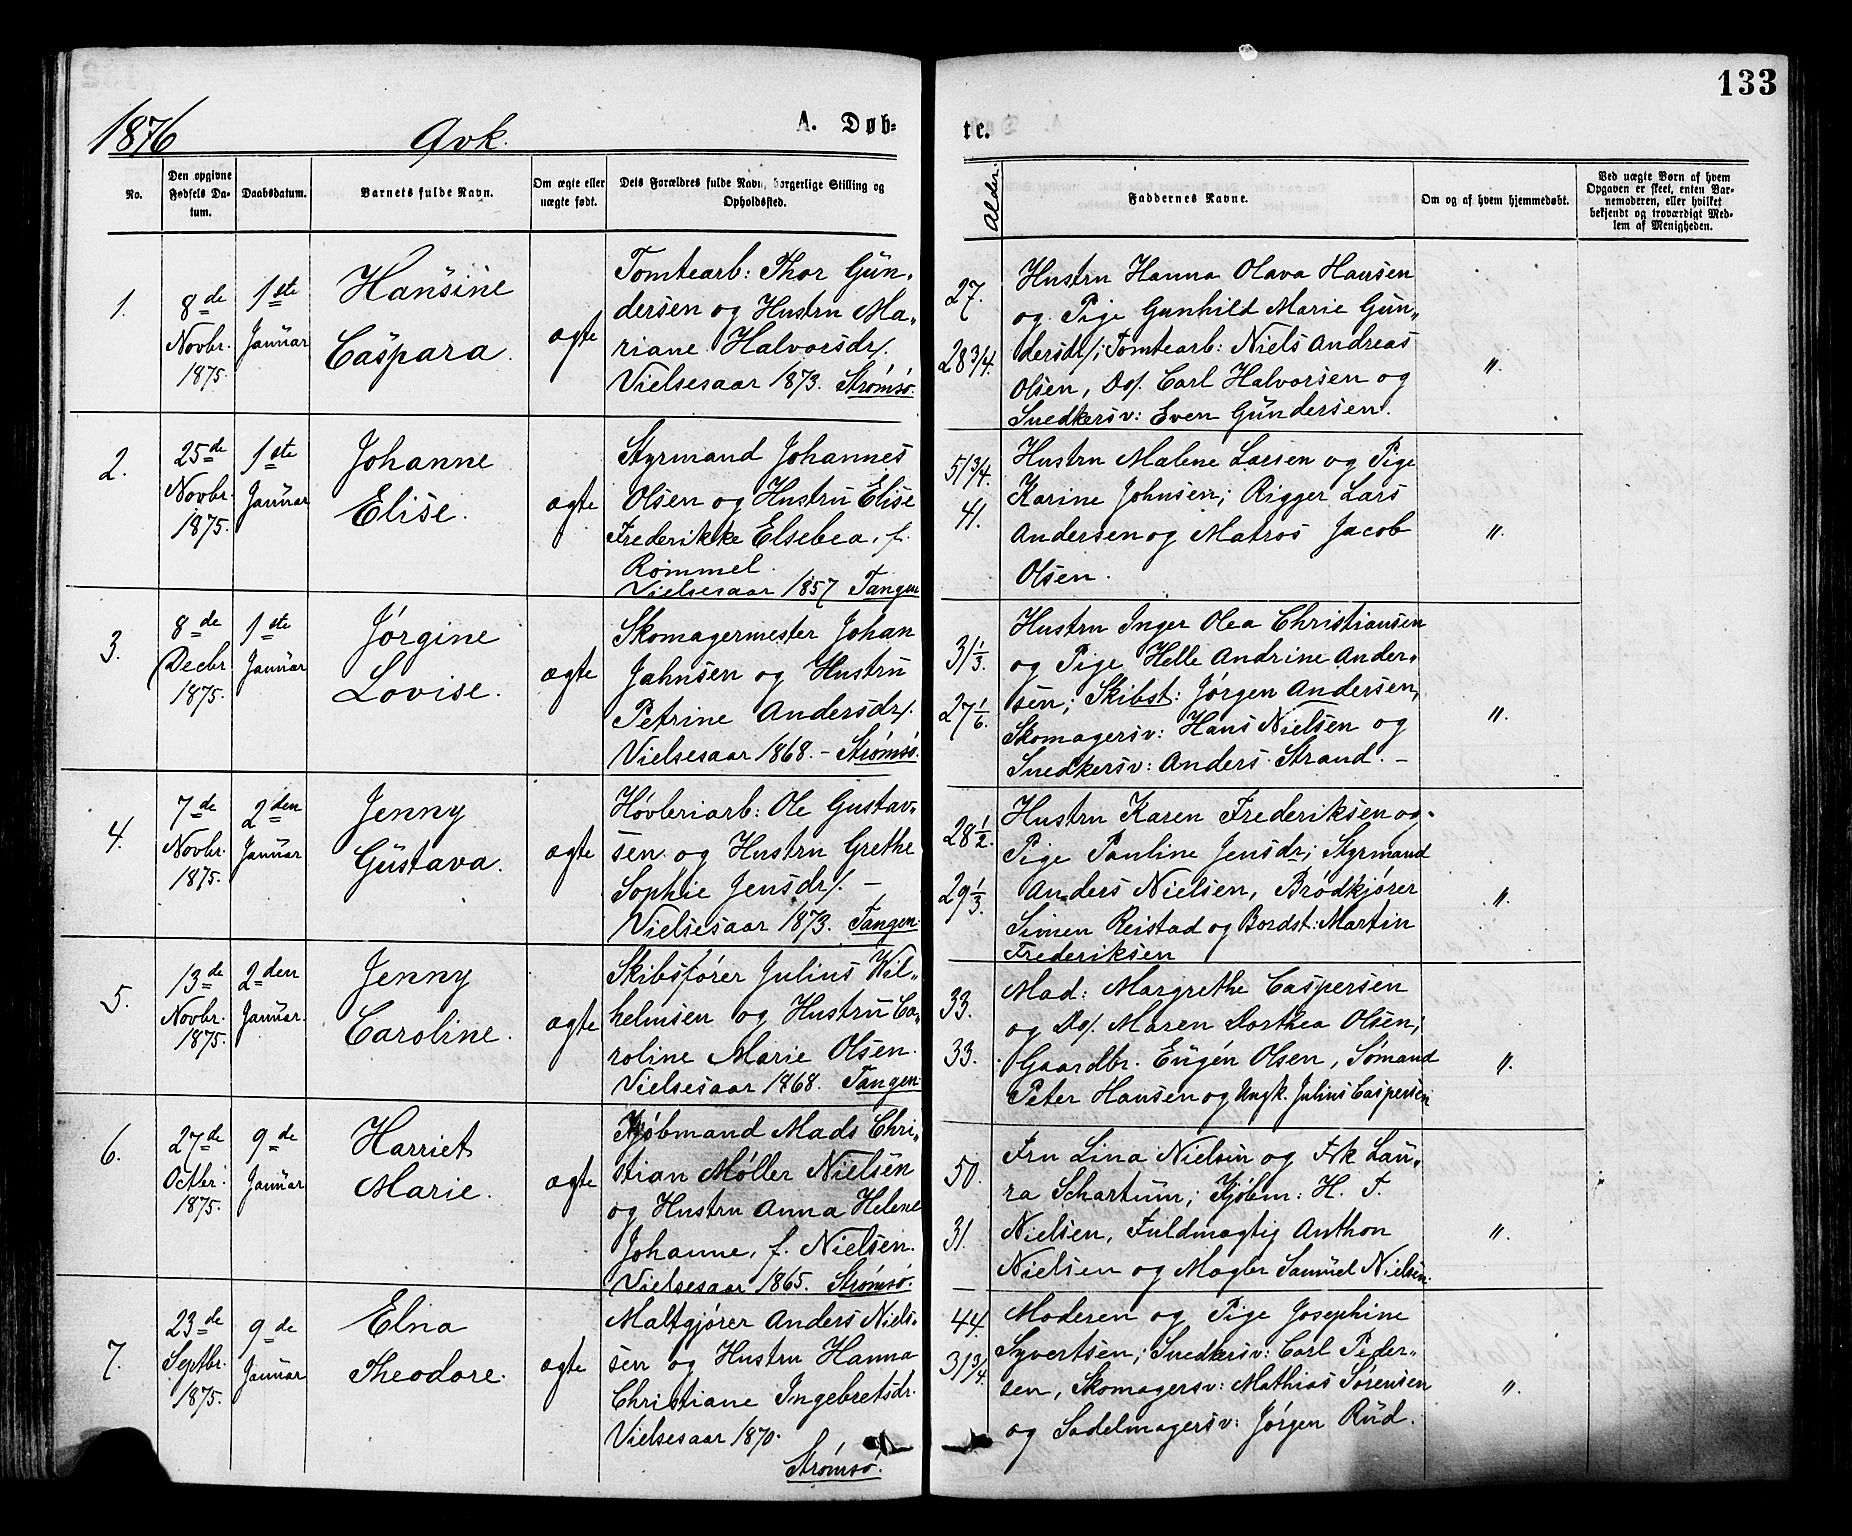 133
1876 Qvk. A. Døbte.
No.
Den opgivne Fødsels Datum.
Daabsdatum.
Barnets fulde Navn.
Om ægte eller uægte født.
Dets Forældres fulde Navn, borgerlige Stilling og Opholdssted.
Alder.
Faddernes Navne.
Om og af hvem hjemmedøbt.
Ved uægte Børn af hvem Opgaven er skeet, enten Barnemoderen, eller hvilket bekjendt og troværdigt Medlem af Menigheden.
1.
8de
Novbr.
1875.
1ste
Januar
Hansine
Caspara.
ægte
Tomtearb: Thor Gun„
dersen og Hustru Ma„
riane Halvorsdr/.
Vielsesaar 1873. Strømsø.
27.
28 3/4.
Hustru Hanna Olava Hansen
og Pige Gunhild Marie Gun„
dersdr/; Tomtearb: Niels Andreas
Olsen, Do/. Carl Halvorsen og
Snedkersv: Even Gundersen.
„.
2.
25de
Novbr.
1875.
1ste
Januar
Johanne
Elise.
ægte
Styrmand Johannes
Olsen og Hustru Elise
Frederikke Elsebea, f.
Rommel.
Vielsesaar 1857 Tangen
51 3/4.
41.
Hustru Malene Larsen og Pige
Karine Johnsen; Rigger Lars
Andersen og Matros Jacob
Olsen.
„.
3.
8de
Decbr
1875.
1ste
Januar
Jørgine
Lovise.
ægte
Skomagermester Johan
Jahnsen og Hustru
Petrine Andersdr/.
Vielsesaar 1868. – Strømsø.
31 1/3.
27 1/6.
Hustru Inger Olea Christiansen
og Pige Helle Andrine Ander„
sen; Skibst: Jørgen Andersen,
Skomagersv: Hans Nielsen og
Snedkersv: Anders Strand. –
„.
4.
7de
Novbr.
1875.
2den
Januar
Jenny
Gustava.
ægte
Høvleriarb: Ole Gustav„
sen og Hustru Grethe
Sophie Jensdr/. –
Vielsesaar 1873. Tangen.
28 1/2.
29 1/3.
Hustru Karen Frederiksen og
Pige Pauline Jensdr; Styrmand
Anders Nielsen, Brødkjører
Simen Reistad og Bordst: Martin
Frederiksen
„.
5.
13de
Novbr.
1875.
2den
Januar.
Jenny
Caroline.
ægte
Skibsfører Julius Wil„
helmsen og Hustru Ca„
roline Marie Olsen.
Vielsesaar 1868. Tangen.
33.
33.
Mad: Margrethe Caspersen
og Do/. Maren Dorthea Olsen;
Gaardbr. Eugén Olsen, Sømand
Peter Hansen og Ungk. Julius Caspersen
„.
6.
27de
Octbr.
1875.
9de
Januar
Harriet
Marie.
ægte
Kjøbmand Mads Chri„
stian Møller Nielsen
og Hustru Anna Helene
Johanne, f. Nielsen.
Vielsesaar 1865. Strømsø.
50.
31.
Fru Lina Nielsen og Frk Lau„
ra Schartum; Kjøbm: H. F.
Nielsen, Fuldmægtig Anthon
Nielsen og Mægler Samuel Nielsen.
„.
7.
23de
Septbr.
1875.
9de
Januar
Elna
Theodore.
ægte
Maltgjører Anders Niels„
sen og Hustru Hanna
Christiane Ingebretsdr.
Vielsesaar 1870.
Strømsø.
44.
31 3/4.
Moderen og Pige Josephine
Syvertsen; Snedkersv: Carl Peder„
sen, Skomagersv: Mathias Sørensen
og Sadelmagersv: Jørgen Rud.
„.